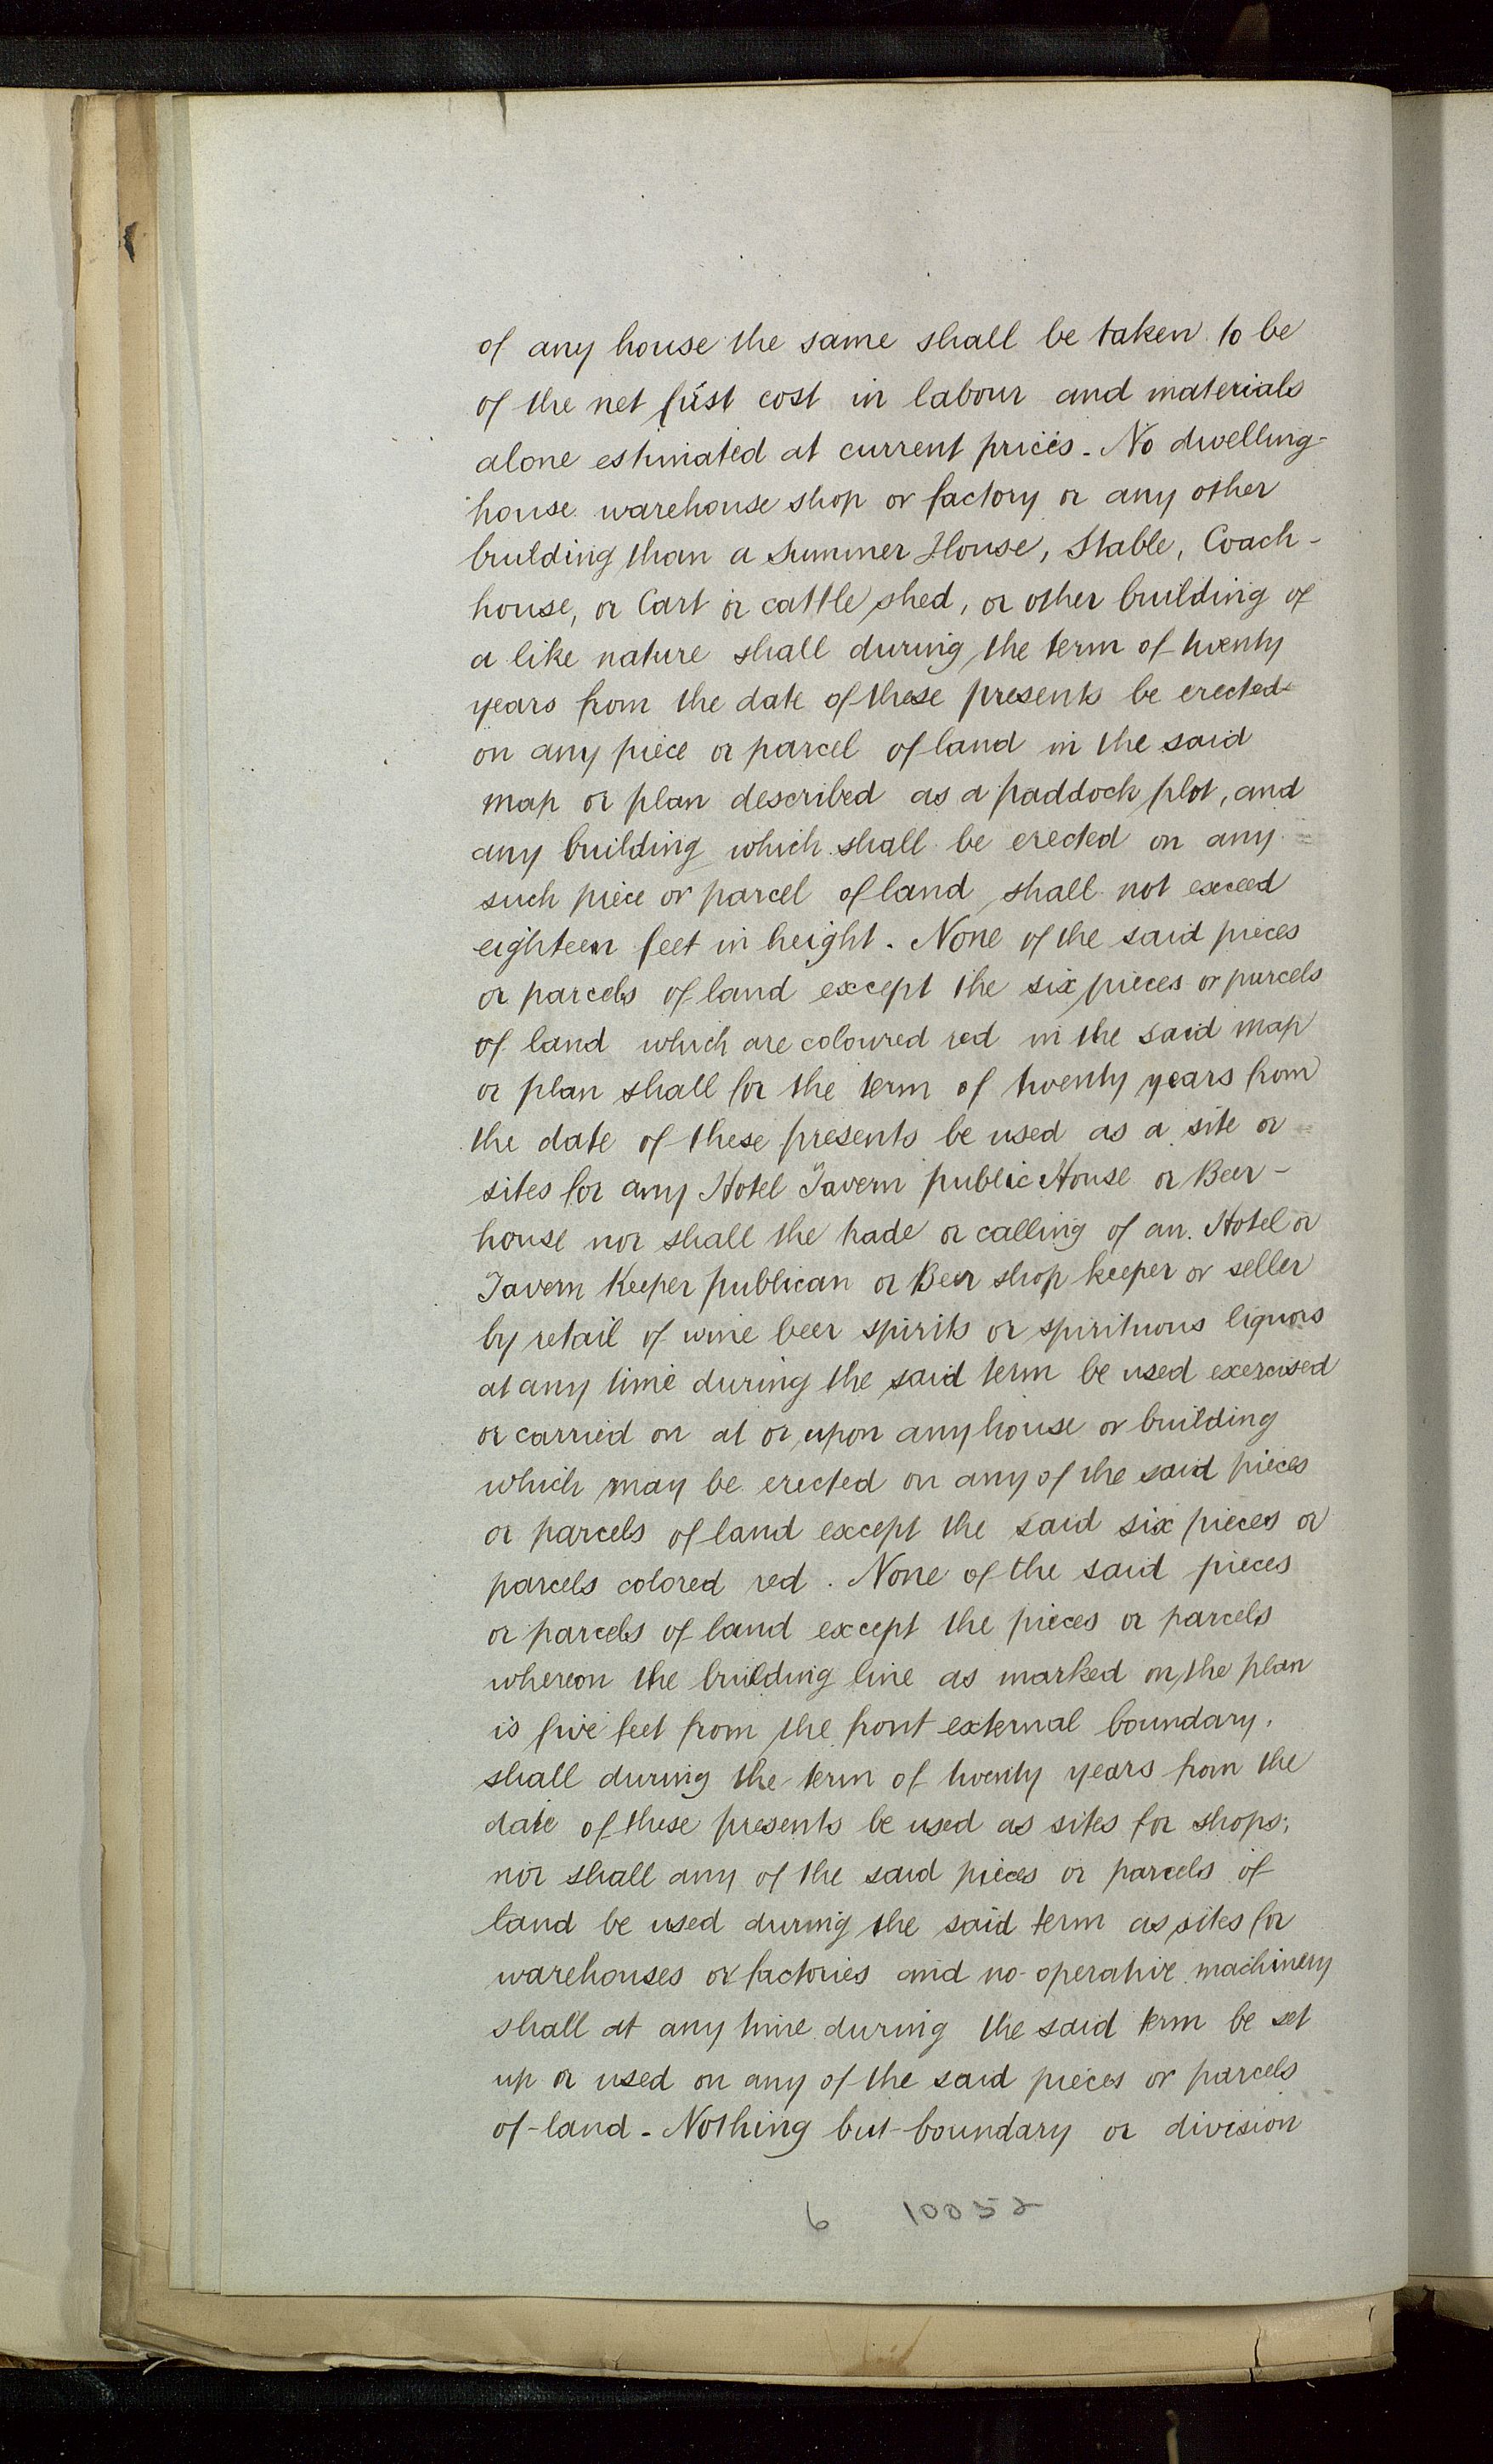 of any house the same shall be taken to be
of the net first cost in labour and materials
alone estimated at current prices. No dwelling-
house warehouse shop or factory or any other
building than a Summer House, Stable, Coach-
house, or Cart or cattle shed, or other building of
a like nature shall during the term of twenty
years from the date of these presents be erected
on any piece or parcel of land in the said
map or plan described as a paddock plot, and
any building which shall be erected on any
such piece or parcel of land shall not exceed
eighteen feet in height. None of the said pieces
or parcels of land except the six pieces or parcels
of land which are coloured red in the said map
or plan shall for the term of twenty years from
the date of these presents be used as a site or
sites for any Hotel Tavern public House or Beer-
house nor shall the trade or calling of an Hotel or
Tavern Keeper publican or Beer shop keeper or seller
by retail of wine beer spirits or spirituous liquors
at any time during the said term be used exercised
or carried on at or upon any house or building
which may be erected on any of the said pieces
or parcels of land except the said six pieces or
parcels colored red. None of the said pieces
or parcels of land except the pieces or parcels
whereon the building line as marked on the plan
is five feet from the front external boundary,
shall during the term of twenty years from the
date of these presents be used as sites for shops;
nor shall any of the said pieces or parcels of
land be used during the said term as sites for
warehouses or factories and no operative machinery
shall at any time during the said term be set
up or used on any of the said pieces or parcels
of land. Nothing but boundary or division
6 10052